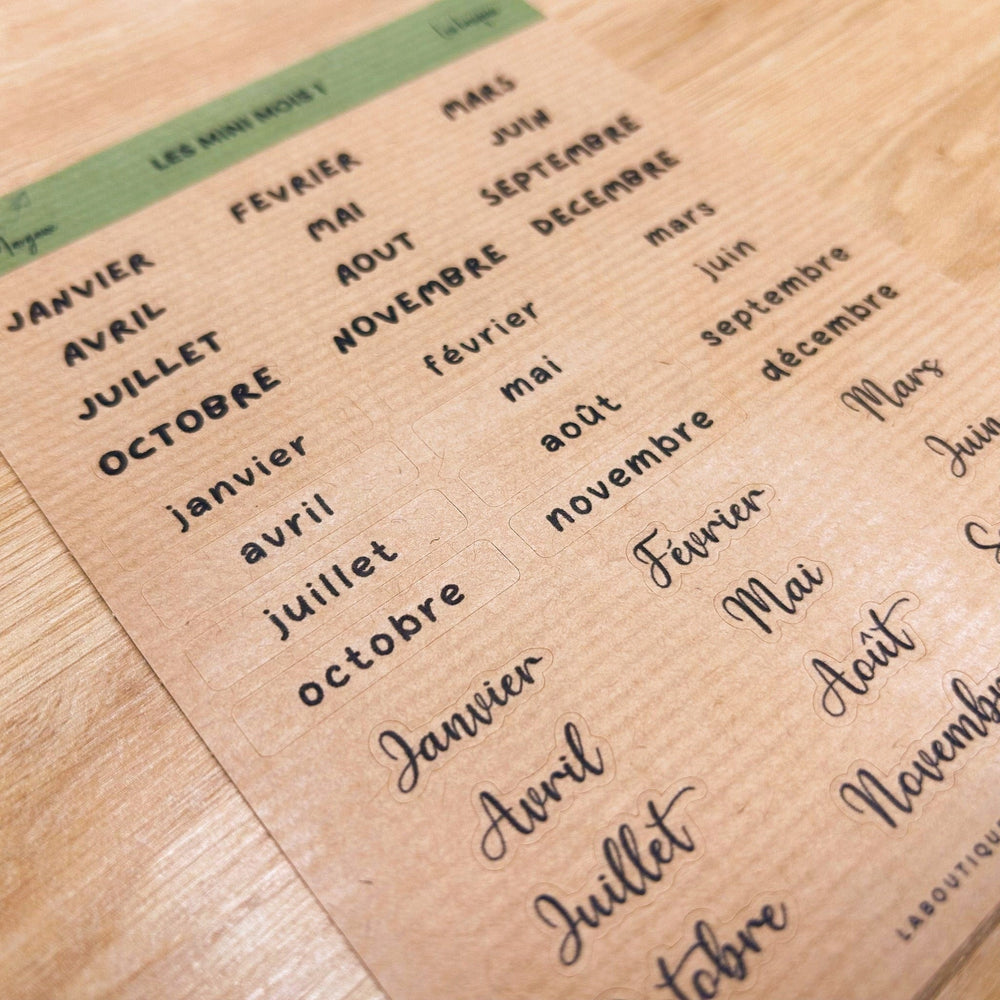 LES MINI MOIS 1
JANVIER FEVRIER MARS
AVRIL MAI JUIN
JUILLET AOUT SEPTEMBRE
OCTOBRE NOVEMBRE DECEMBRE
janvier février mars
avril mai juin
juillet août septembre
octobre novembre décembre
Janvier Février Mars
Avril Mai Juin
Juillet Août
Novemb
LABOUTIQU